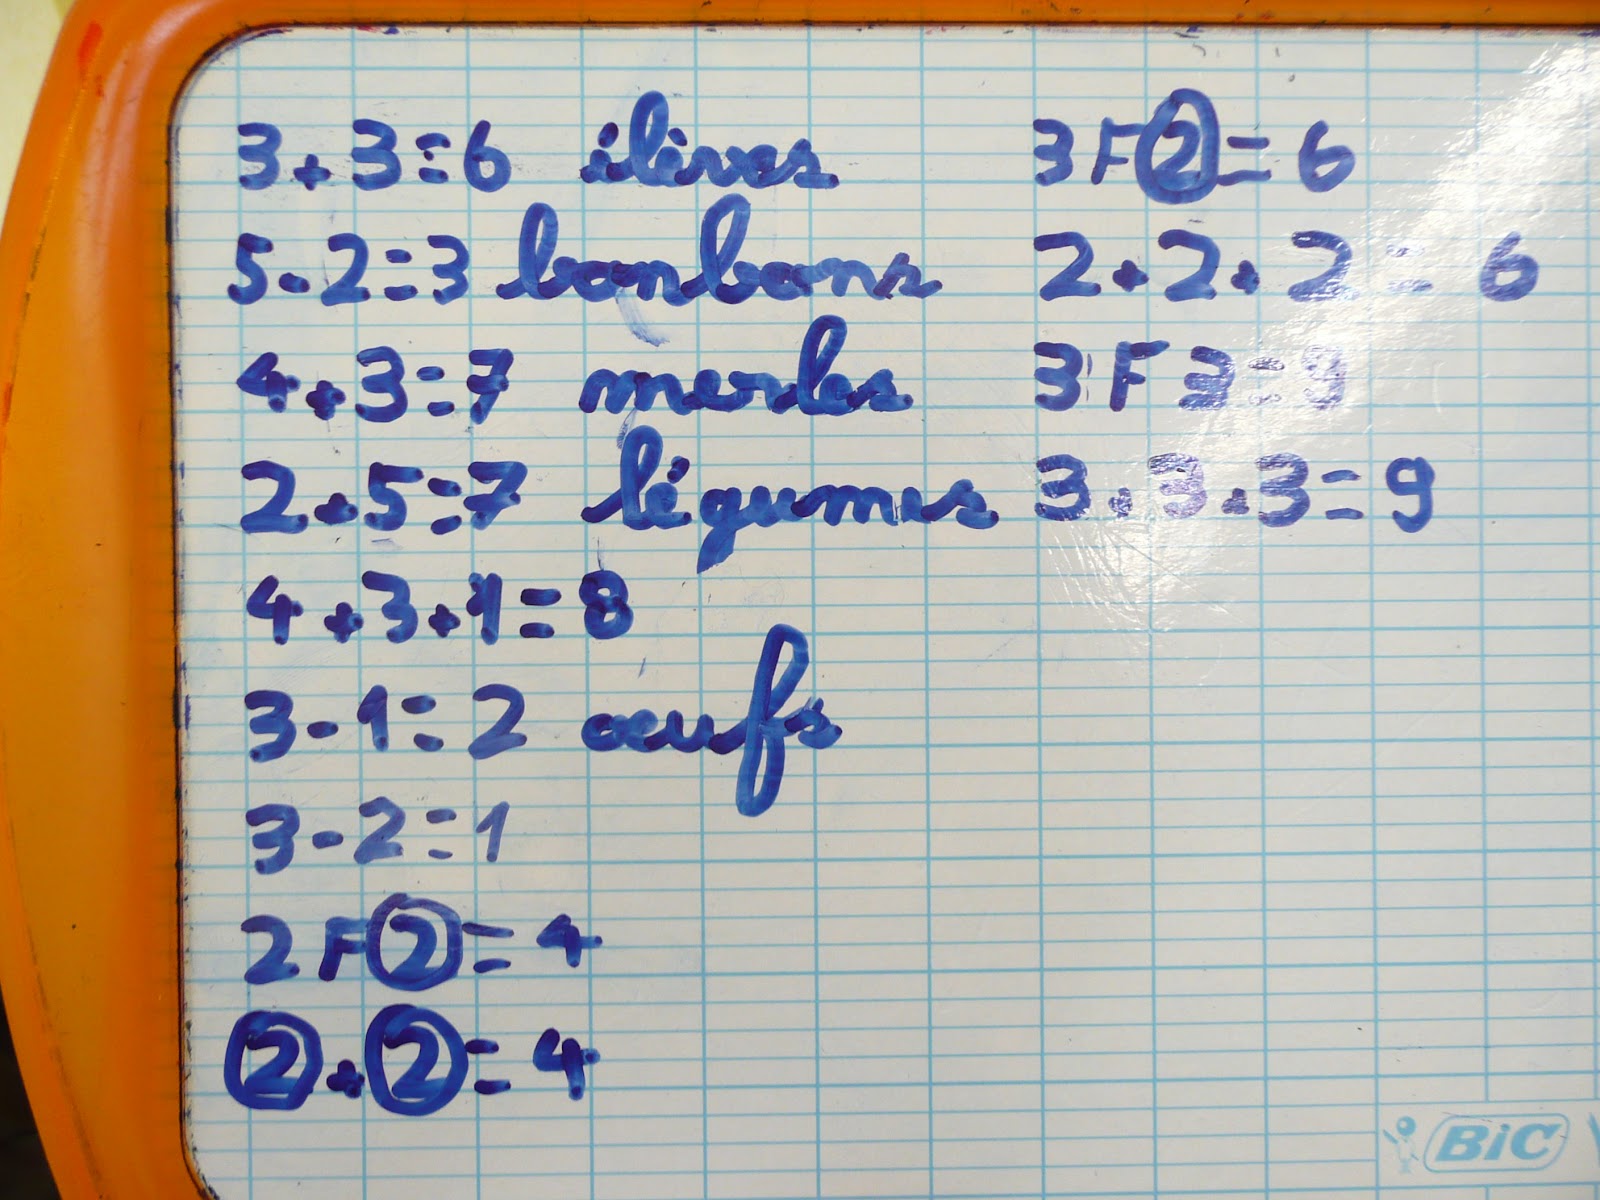 3+3=6 élèves
5-2=3 bonbons
4+3=7 merles
2+5=7 légumes
4+3+1=8
3-1=2 oeufs
3-2=1
2F2=4
2+2=4
3F2=6
2+2+2=6
3F3=9
3+3+3=9
BiC